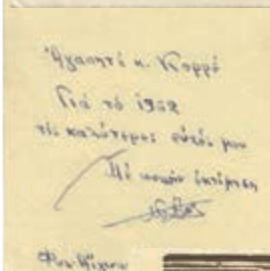 Ἀγαπητέ κ. Κορρέ
Γιά τό 1952
τίς καλύτερες εὐχές μου
Μέ πολλήν ἐκτίμηση